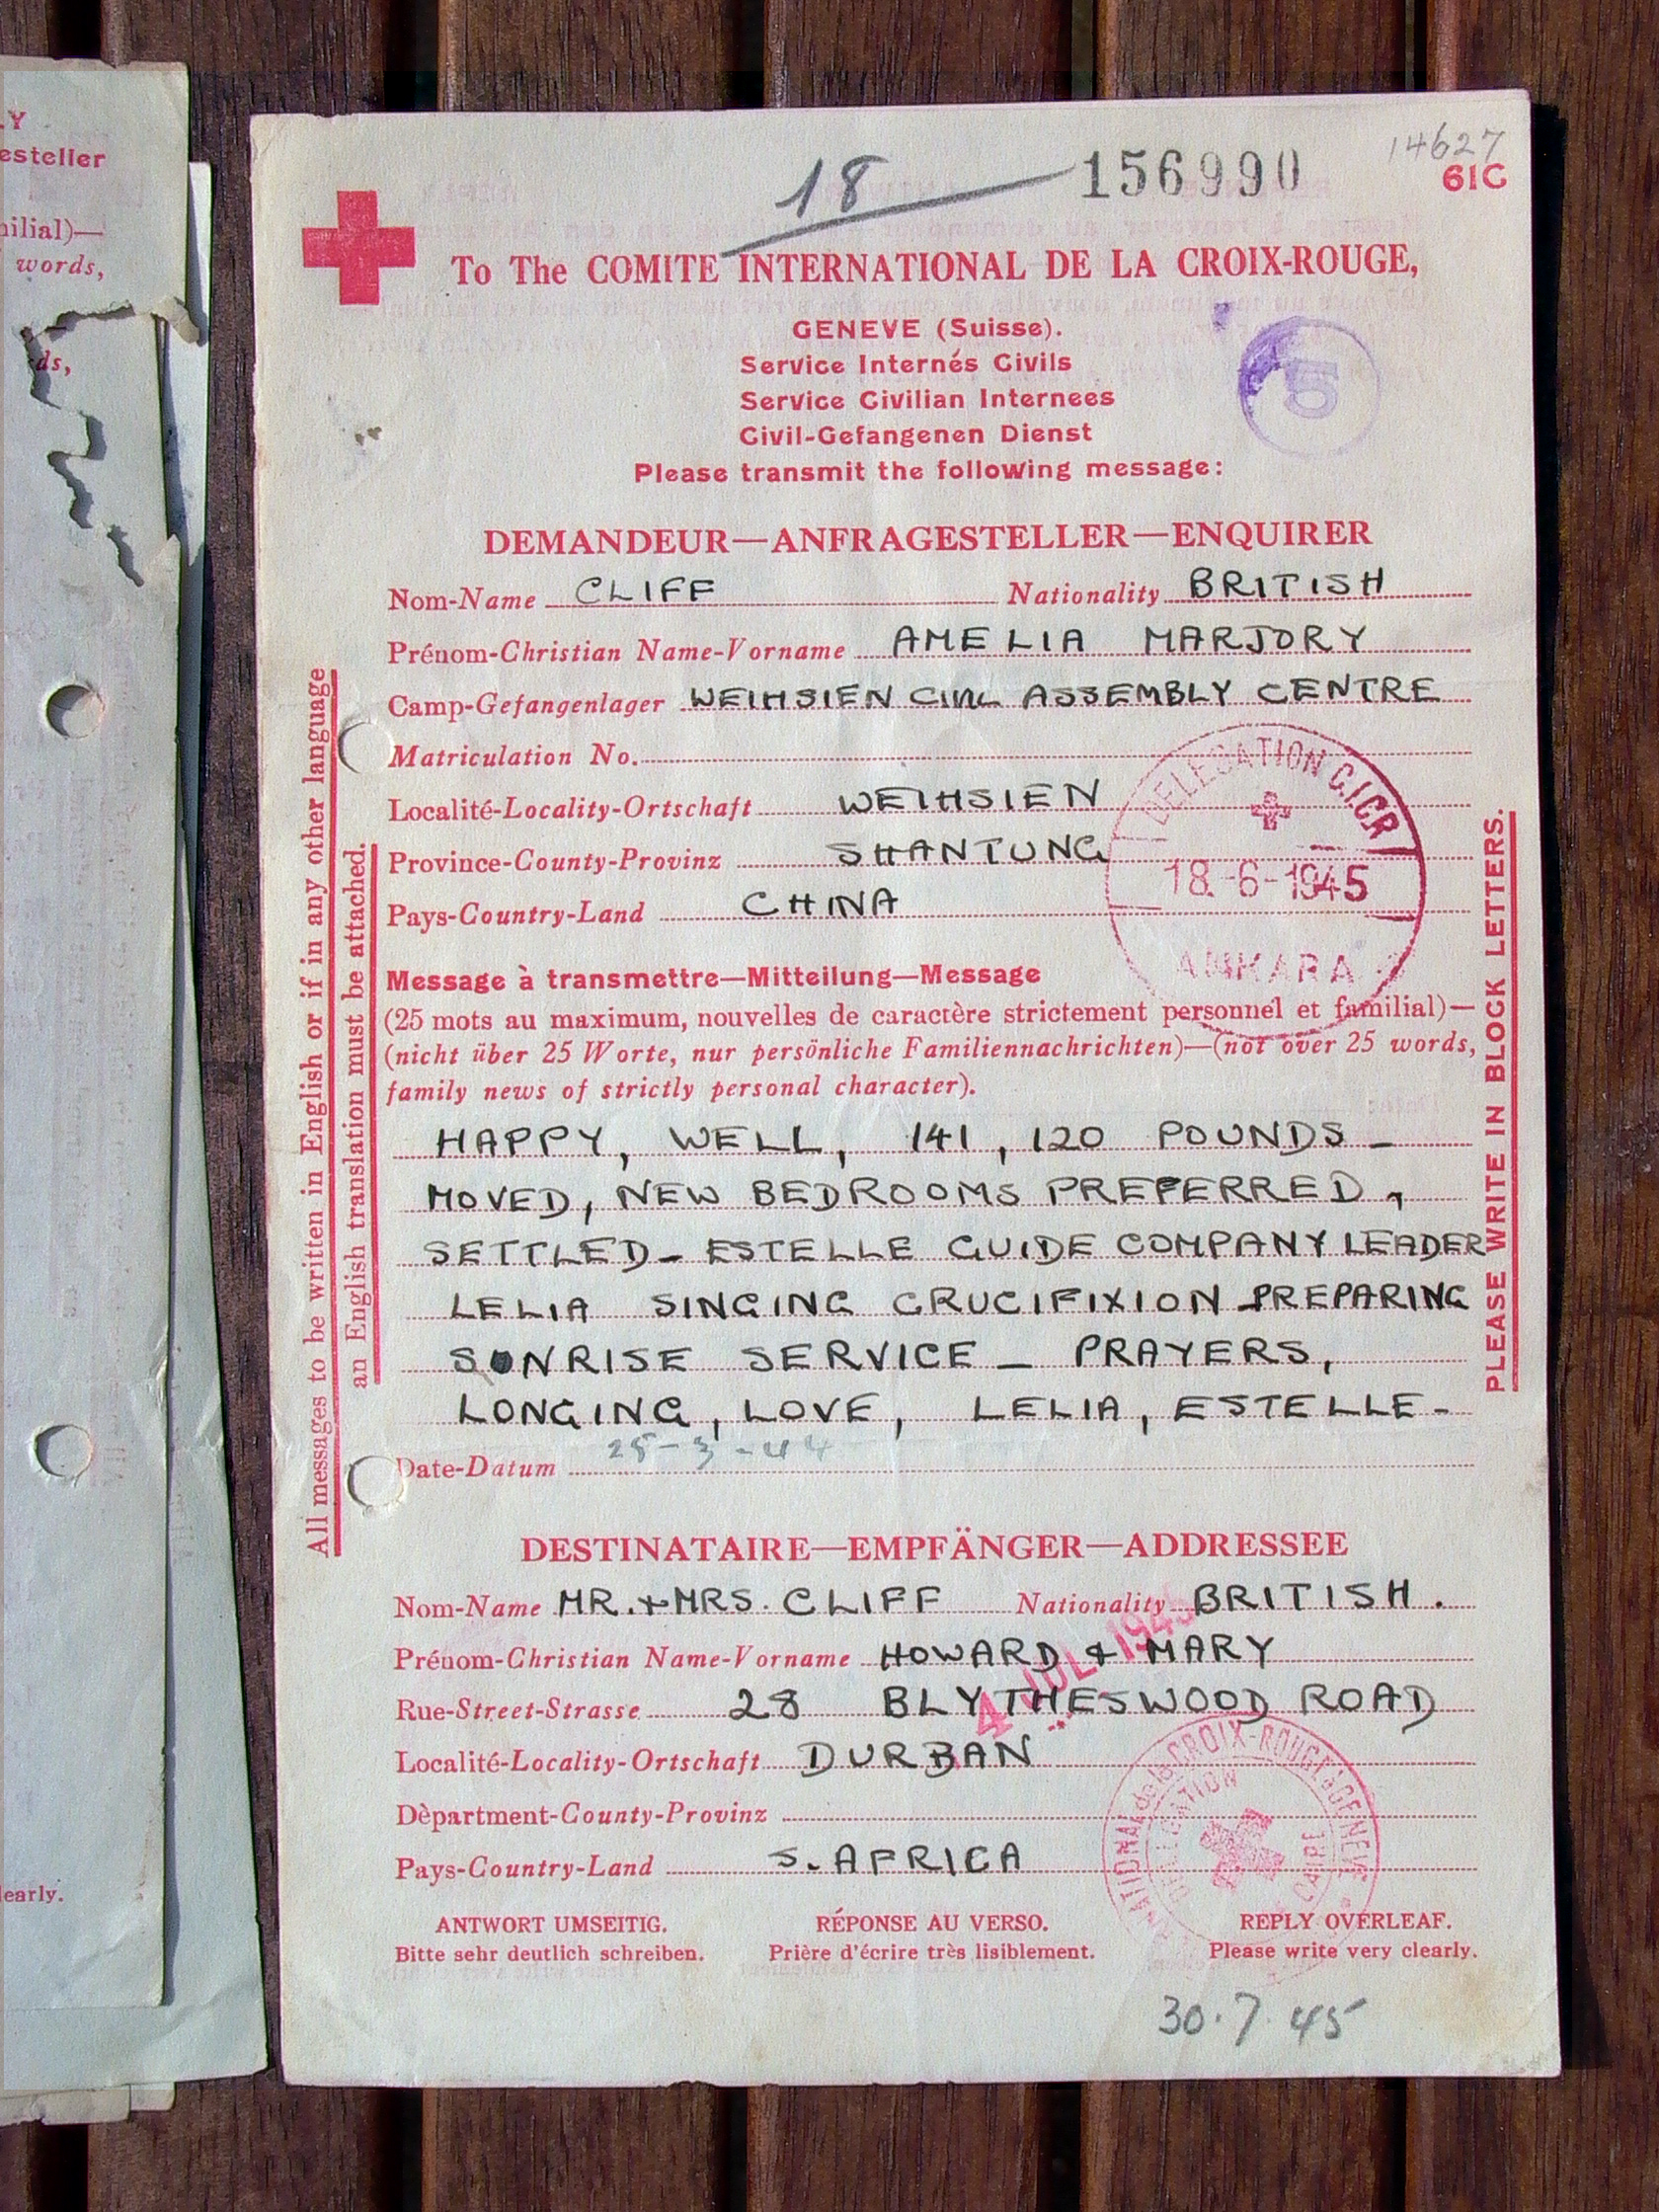 LY
esteller
nilial)—
words,
ds,
early.
18
156990
14627
61C
To The COMITE INTERNATIONAL DE LA CROIX-ROUGE,
GENEVE (Suisse).
Service Internés Civils
Service Civilian Internees
Civil-Gefangenen Dienst
Please transmit the following message:
5
DEMANDEUR—ANFRAGESTELLER—ENQUIRER
Nom-Name CLIFF Nationality BRITISH
Prénom-Christian Name-Vorname AMELIA MARJORY
Camp-Gefangenlager WEIHSIEN CIVIL ASSEMBLY CENTRE
Matriculation No.
Localité-Locality-Ortschaft WEIHSIEN
Province-County-Provinz SHANTUNG
Pays-Country-Land CHINA
DELEGATION C.I.C.R
18.-6-1945
ANKARA
Message à transmettre—Mitteilung—Message
(25 mots au maximum, nouvelles de caractère strictement personnel et familial)—
(nicht über 25 Worte, nur persönliche Familiennachrichten)—(not over 25 words,
family news of strictly personal character).
HAPPY, WELL, 141, 120 POUNDS –
MOVED, NEW BEDROOMS PREFERRED,
SETTLED – ESTELLE GUIDE COMPANY LEADER
LELIA SINGING CRUCIFIXION PREPARING
SONRISE SERVICE – PRAYERS,
LONGING, LOVE, LELIA, ESTELLE –
Date-Datum 25-3-44
All messages to be written in English or if in any other language
an English translation must be attached.
PLEASE WRITE IN BLOCK LETTERS.
DESTINATAIRE—EMPFÄNGER—ADDRESSEE
Nom-Name MR. & MRS. CLIFF Nationality BRITISH.
Prénom-Christian Name-Vorname HOWARD & MARY
Rue-Street-Strasse 28 BLYTHESWOOD ROAD
Localité-Locality-Ortschaft DURBAN
Dèpartment-County-Provinz
Pays-Country-Land S. AFRICA
4 JUL 1945
NATIONAL de la CROIX-ROUGE GENEVE
DELEGATION CAIRE
ANTWORT UMSEITIG. RÉPONSE AU VERSO. REPLY OVERLEAF.
Bitte sehr deutlich schreiben. Prière d'écrire très lisiblement. Please write very clearly.
30.7.45